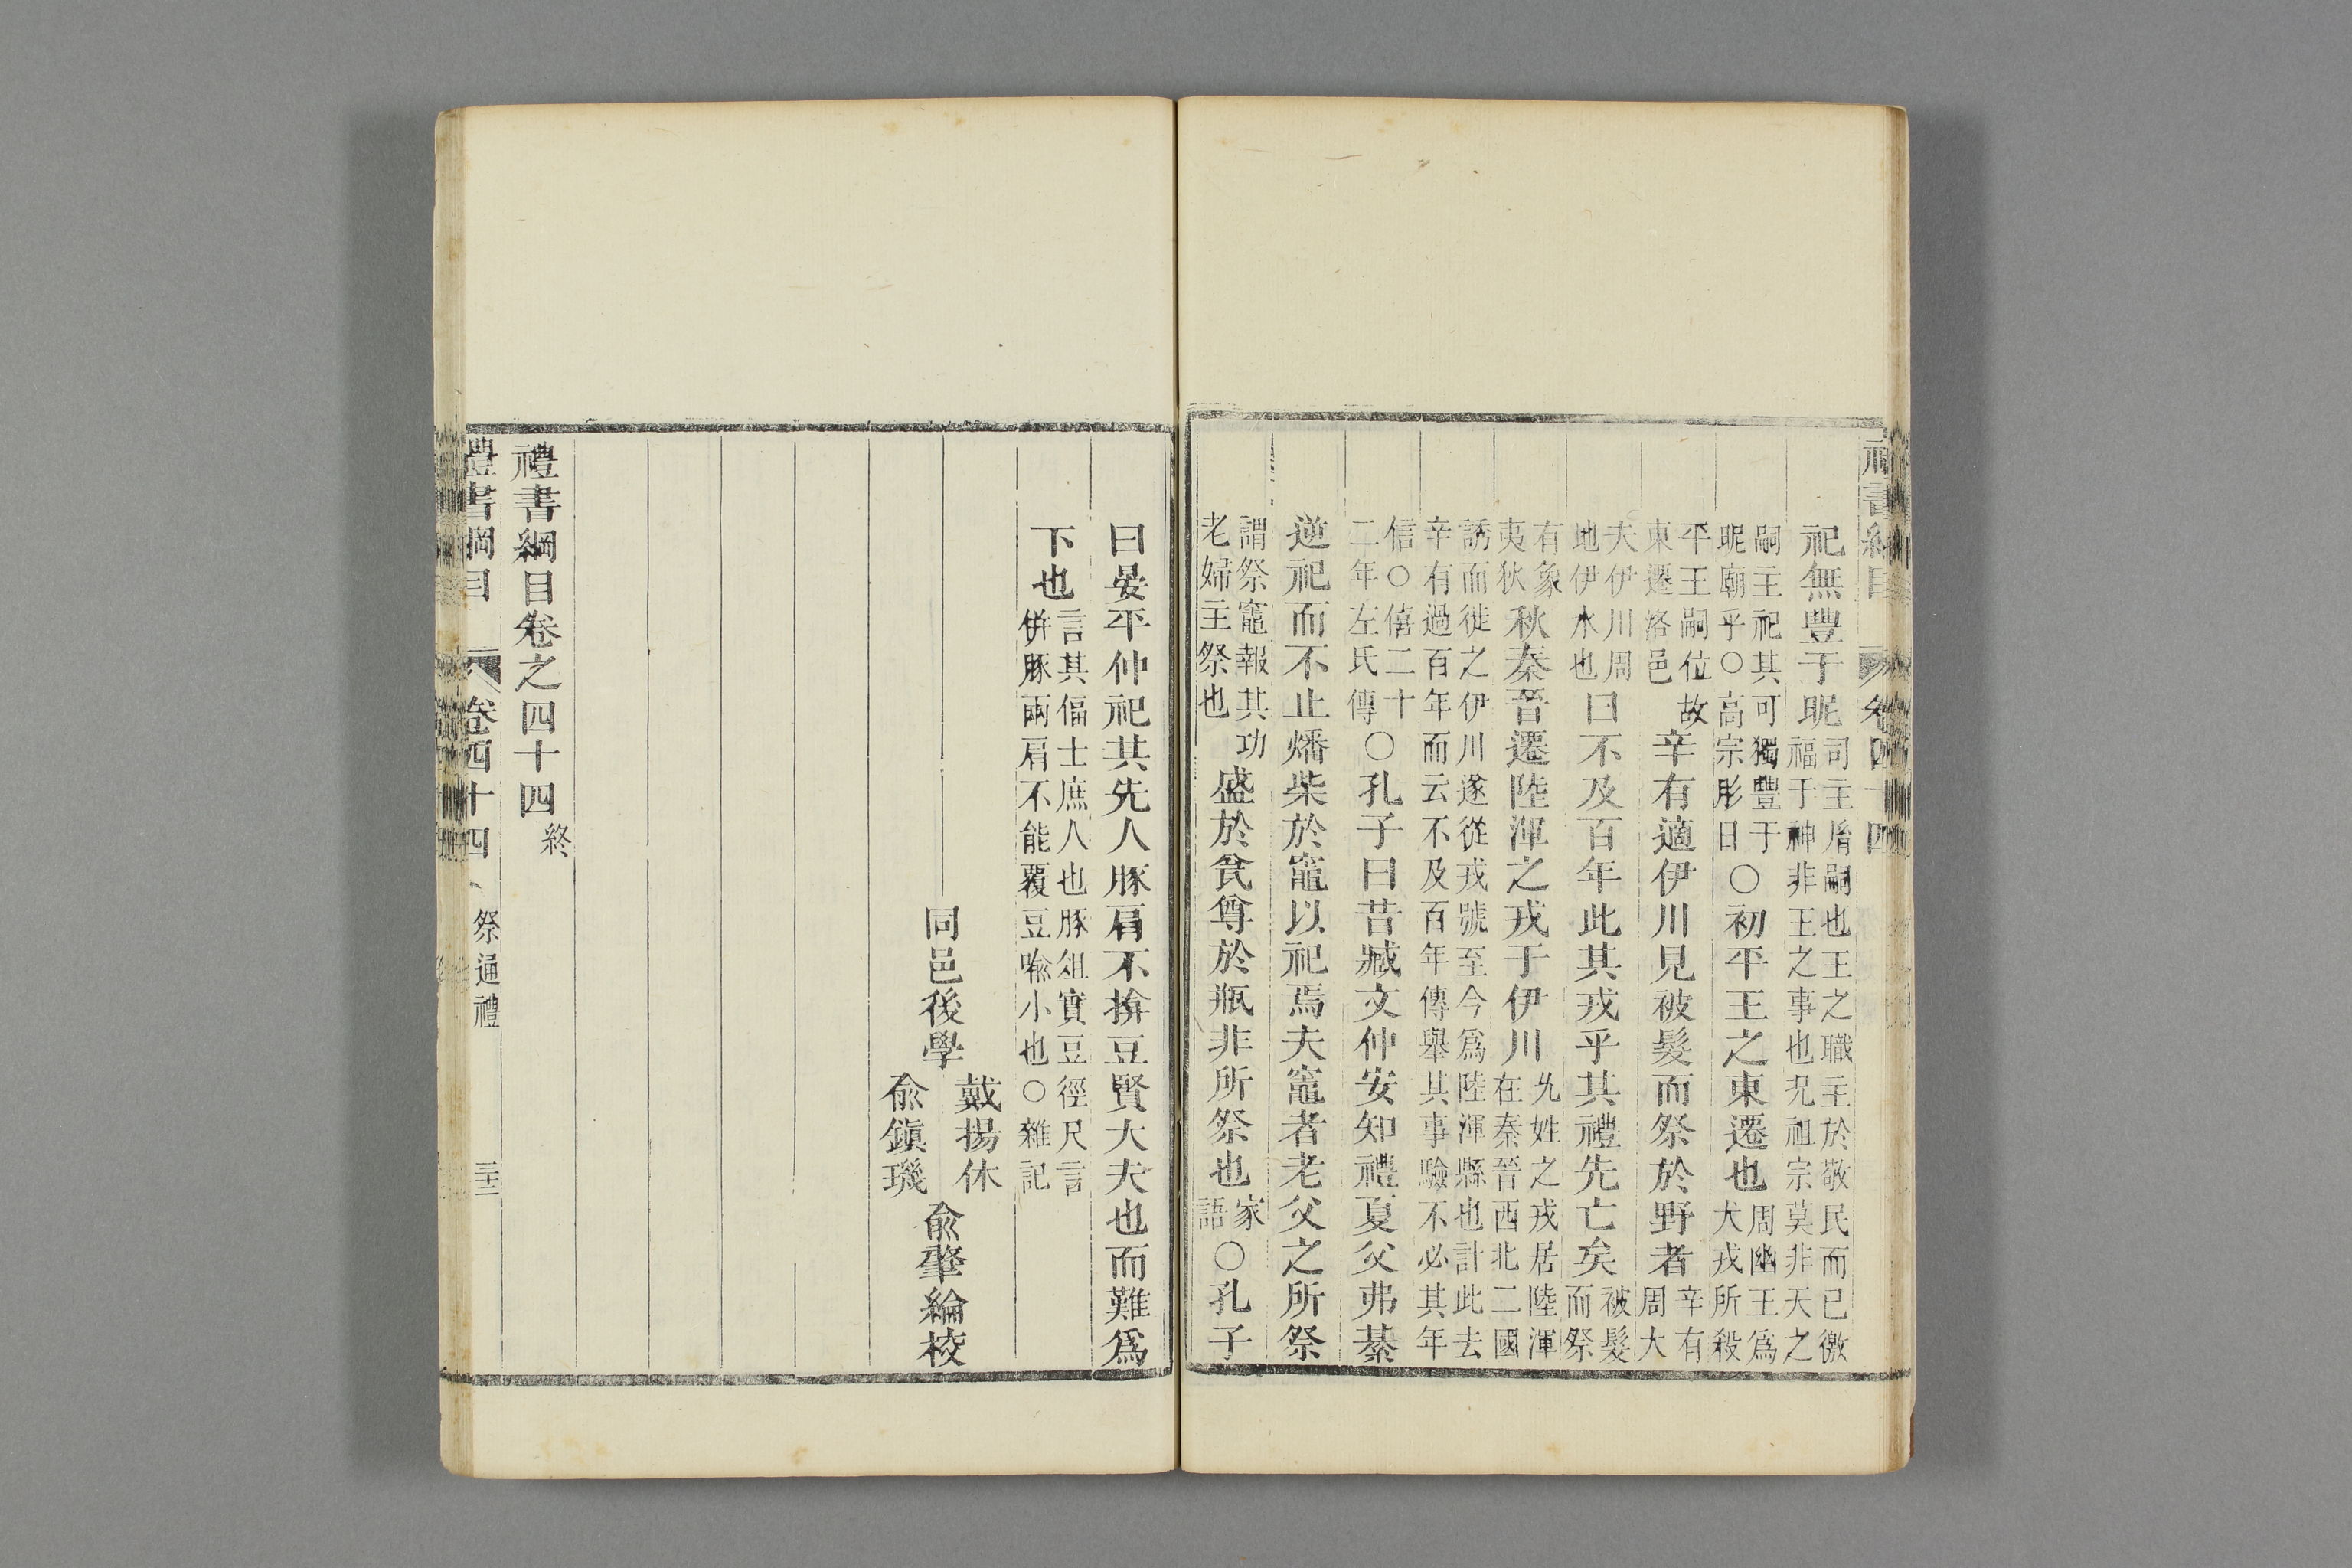 禮書綱目 卷四十四
祀無豐于昵司主胤嗣也王之職主於敬民而已徼福于神非王之事也况祖宗莫非天之
嗣主祀其可獨豐于昵廟乎○高宗肜日○初平王之東遷也周幽王爲犬戎所殺
平王嗣位故東遷洛邑辛有適伊川見被髮而祭於野者辛有周大
夫伊川周地伊水也曰不及百年此其戎乎其禮先亡矣被髮而祭
有象夷狄秋秦晉遷陸渾之戎于伊川允姓之戎居陸渾在秦晉西北二國
誘而徙之伊川遂從戎號至今爲陸渾縣也計此去辛有過百年而云不及百年傳舉其事驗不必其年
信○僖二十二年左氏傳○孔子曰昔臧文仲安知禮夏父弗綦
逆祀而不止燔柴於竈以祀焉夫竈者老父之所祭
謂祭竈報其功老婦主祭也盛於瓫尊於瓶非所祭也家語○孔子
曰晏平仲祀其先人豚肩不揜豆賢大夫也而難爲
下也言其偪士庶人也豚俎實豆徑尺言併豚兩肩不能覆豆喩小也○雜記
同邑後學戴揚休俞鎭璣俞肇綸校
禮書綱目卷之四十四終
禮書綱目 卷四十四 祭通禮 三十二